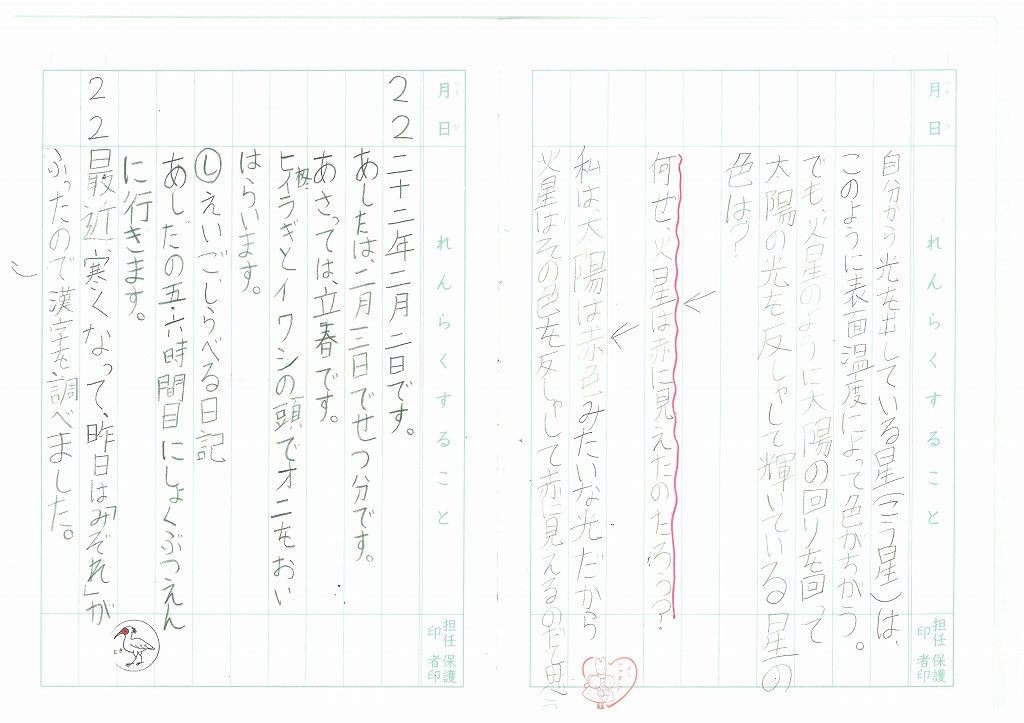 月 日
れんらくすること
自分から光を出している星(こう星)は、
このように表面温度によって色がちがう。
でも、火星のように太陽の回りを回って
太陽の光を反しゃして輝いている星の
色は?
何ぜ、火星は赤に見えたのだろう?
私は、太陽は赤色みたいな光だから
火星はその色を反しゃして赤に見えるのだと思う
担任印
保護者印
月 日
れんらくすること
22 二十二年二月二日です。
あしたは、二月三日でせつ分です。
あさっては、立春です。
柊
ヒイラギとイワシの頭でオニをおい
はらいます。
し えいご、しらべる日記
あしたの五・六時間目にしょくぶつえん
に行きます。
22 最近、寒くなって、昨日は「みぞれ」が
ふったので漢字を調べました。
担任印
保護者印